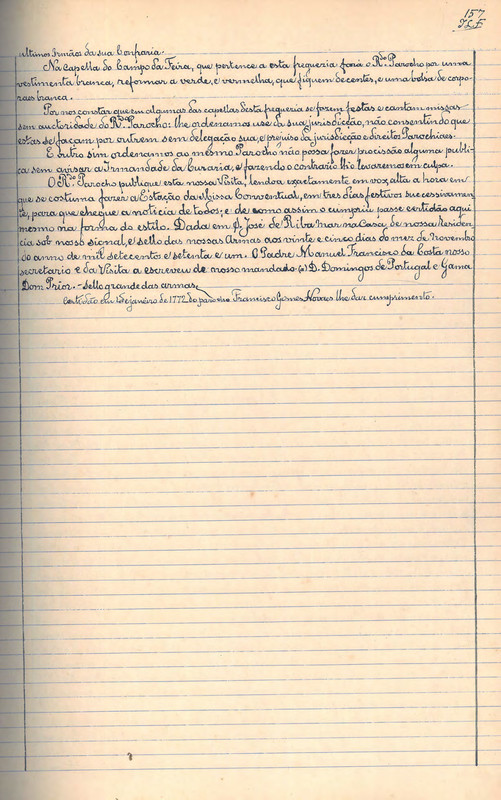 157
ultimos Irmãos da sua Confraria.
Na Capella do Campo da Feira, que pertence a esta freguezia fará o Rdo. Parocho por uma
vestimenta branca, reformar a verde, e vermelha, que fiquem decentes, e uma bolsa de corpo-
raes branca.
Por nos constar que em algumas das capellas desta freguezia se fazem festas e cantam missas
sem auctoridade do Rdo. Parocho: lhe ordenamos use da sua jurisdicção, não consentindo que
estas se façam por outrem sem delegação sua, e prejuizo da jurisdicção e direitos Parochiaes.
E outro sim ordenamos ao mesmo Parocho não possa fazer procissão alguma publi-
ca sem avisar a Irmandade da Curaria, e fazendo o contrario lh'o levaremos em culpa.
O Rdo. Parocho publique esta nossa Visita, lendo-a exactamente em voz alta a hora em
que se costuma fazer a Estação da Missa Conventual, em tres dias festivos successivamen-
te, para que chegue a noticia de todos; e de como assim o cumpriu passe certidão aqui
mesmo na forma do estilo. Dada em S. José de Riba Mar na Casa de nossa Residen-
cia sob nosso signal, e sello das nossas Armas aos vinte e cinco dias do mez de Novembro
do anno de mil setecentos e setenta e um. O Padre Manuel Francisco da Costa nosso
secretario e da Visita a escreveu de nosso mandado (a) D. Domingos de Portugal e Gama
Dom Prior. - Sello grande das armas.
Certidão de janeiro de 1772 do parocho Francisco Gomes Novaes lhe dar cumprimento.